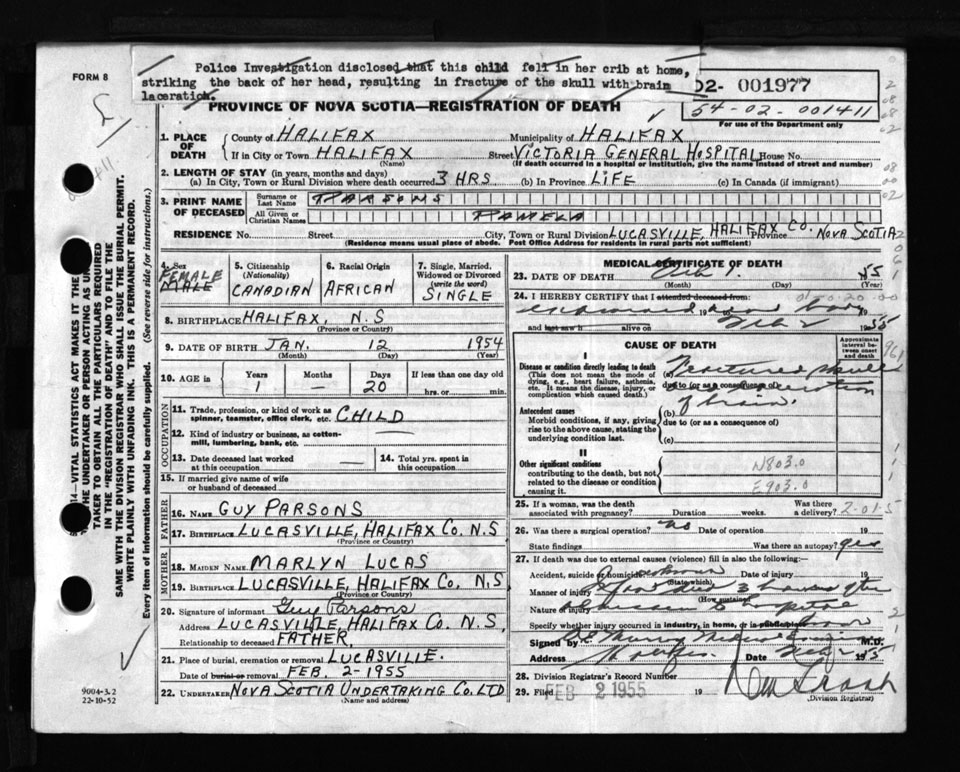 FORM 8
Police Investigation disclosed that this child fell in her crib at home,
striking the back of her head, resulting in fracture of the skull with brain
laceration.
02- 001977
54-02-001411
For use of the Department only
PROVINCE OF NOVA SCOTIA—REGISTRATION OF DEATH
1. PLACE OF DEATH
County of HALIFAX Municipality of HALIFAX
If in City or Town HALIFAX Street VICTORIA GENERAL HOSPITAL House No.
(Name) (If death occurred in a hospital or institution, give the name instead of street and number)
2. LENGTH OF STAY (in years, months and days)
(a) In City, Town or Rural Division where death occurred 3 HRS (b) In Province LIFE (c) In Canada (if immigrant)
3. PRINT NAME OF DECEASED
Surname or Last Name PARSONS
All Given or Christian Names PAMELA
RESIDENCE No. Street City, Town or Rural Division LUCASVILLE, HALIFAX CO. Province NOVA SCOTIA
(Residence means usual place of abode. Post Office Address for residents in rural parts not sufficient)
4. Sex FEMALE MALE
5. Citizenship (Nationality) CANADIAN
6. Racial Origin AFRICAN
7. Single, Married, Widowed or Divorced (write the word) SINGLE
8. BIRTHPLACE HALIFAX, N.S
(Province or Country)
9. DATE OF BIRTH JAN. 12 1954
(Month) (Day) (Year)
10. AGE IN Years Months Days If less than one day old
1 — 20 hrs. or min.
OCCUPATION
11. Trade, profession, or kind of work as spinner, teamster, office clerk, etc. CHILD
12. Kind of industry or business, as cotton-mill, lumbering, bank, etc.
13. Date deceased last worked at this occupation —
14. Total yrs. spent in this occupation
15. If married give name of wife or husband of deceased
FATHER
16. NAME GUY PARSONS
17. BIRTHPLACE LUCASVILLE, HALIFAX CO. N.S
(Province or Country)
MOTHER
18. MAIDEN NAME MARLYN LUCAS
19. BIRTHPLACE LUCASVILLE, HALIFAX CO. N.S
(Province or Country)
20. Signature of informant Guy Parsons
Address LUCASVILLE, HALIFAX CO. N.S,
Relationship to deceased FATHER
21. Place of burial, cremation or removal LUCASVILLE.
Date of burial or removal FEB. 2-1955
22. UNDERTAKER NOVA SCOTIA UNDERTAKING CO. LTD
(Name and address)
MEDICAL CERTIFICATE OF DEATH
23. DATE OF DEATH Feb 1. 1955
(Month) (Day)
24. I HEREBY CERTIFY that I attended deceased from:
examined body
and last saw h alive on Feb 2 1955
CAUSE OF DEATH
Approximate interval between onset and death
I
Disease or condition directly leading to death
(This does not mean the mode of dying, e.g., heart failure, asthenia, etc. It means the disease, injury, or complication which caused death.)
(a) Fractured skull
due to (or as a consequence of) laceration
Antecedent causes
Morbid conditions, if any, giving rise to the above cause, stating the underlying condition last.
(b) of brain.
due to (or as a consequence of)
(c)
II
Other significant conditions contributing to the death, but not related to the disease or condition causing it.
N803.0
E903.0
25. If a woman, was the death associated with pregnancy? Duration weeks. Was there a delivery? 2-01-5
26. Was there a surgical operation? no Date of operation
State findings Was there an autopsy? yes
27. If death was due to external causes (violence) fill in also the following:
Accident, suicide or homicide? unknown Date of injury
(State which)
Manner of injury died 3 hours after
(How sustained)
Nature of injury admission to hospital
Specify whether injury occurred in industry, in home, or in public place
Signed by Murray Medical Examiner M.D.
Address Halifax Date Feb 2 1955
28. Division Registrar's Record Number
29. Filed FEB 2 1955 19
(Division Registrar)
9004-3.2
22-10-52
TAKER TO OBTAIN ALL THE PARTICULARS REQUIRED
IN THE "REGISTRATION OF DEATH" AND TO FILE THE
SAME WITH THE DIVISION REGISTRAR WHO SHALL ISSUE THE BURIAL PERMIT.
WRITE PLAINLY WITH UNFADING INK. THIS IS A PERMANENT RECORD.
Every item of information should be carefully supplied. (See reverse side for instructions.)